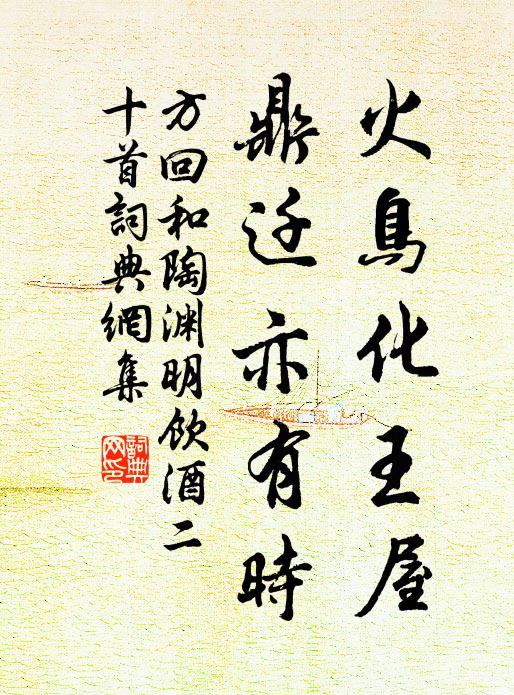 火鳥化王屋
鼎迁亦有時
方回和陶渊明飲酒二
十首詞典網集
詞典网印